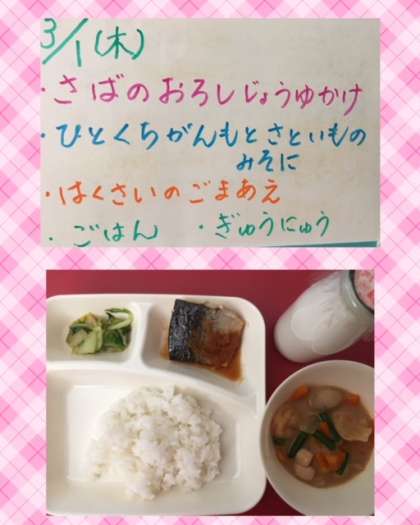 3/1(木)
・さばのおろしじょうゆかけ
・ひとくちがんもとさといもの
みそに
・はくさいのごまあえ
・ごはん ・ぎゅうにゅう